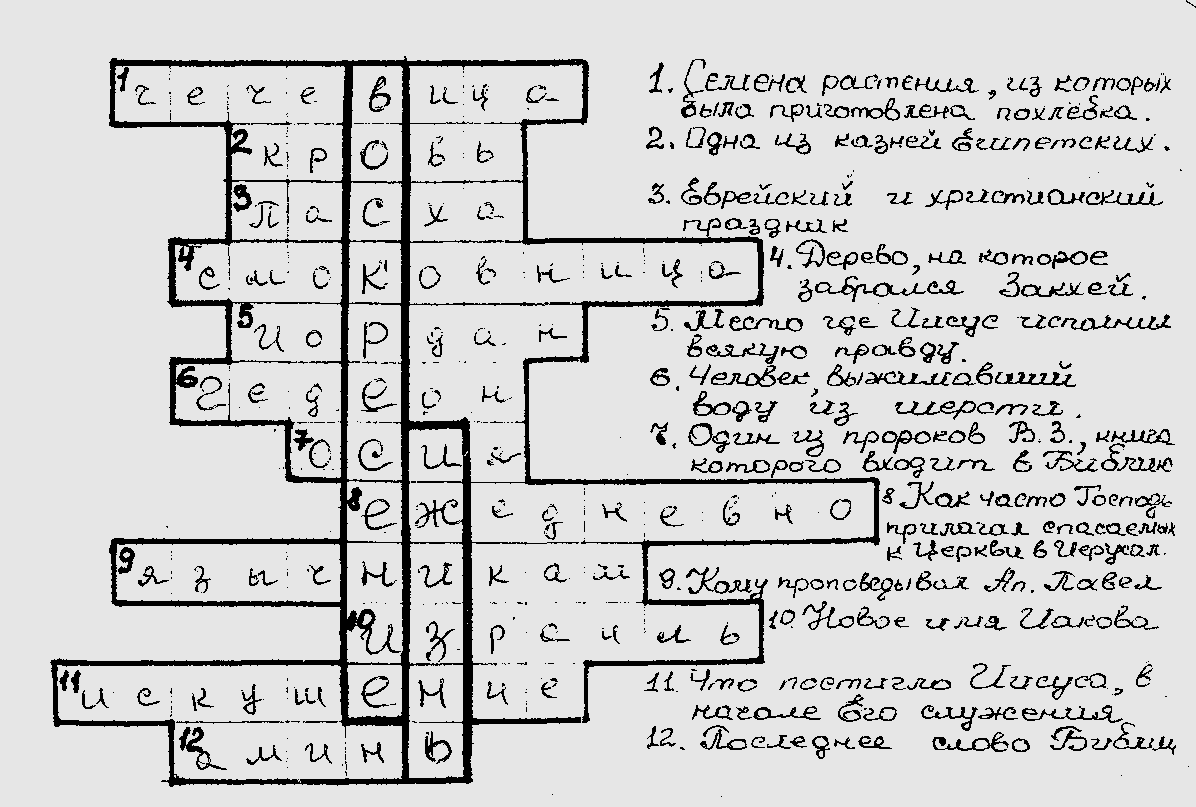 1 чечевица
2 кровь
3 Пасха
4 смоковница
5 Иордан
6 Гедеон
7 Осия
8 ежедневно
9 язычникам
10 Израиль
11 искушение
12 аминь
1. Семена растения, из которых
была приготовлена похлёбка.
2. Одна из казней Египетских.
3. Еврейский и христианский
праздник
4. Дерево, на которое
забрался Закхей.
5. Место где Иисус исполнил
всякую правду.
6. Человек, выжимавший
воду из шерсти.
7. Один из пророков В.З., книга
которого входит в Библию
8 Как часто Господь
прилагал спасаемых
к Церкви в Иерусал.
9. Кому проповедывал Ап. Павел
10 Новое имя Иакова
11. Что постигло Иисуса, в
начале Его служения
12. Последнее слово Библии